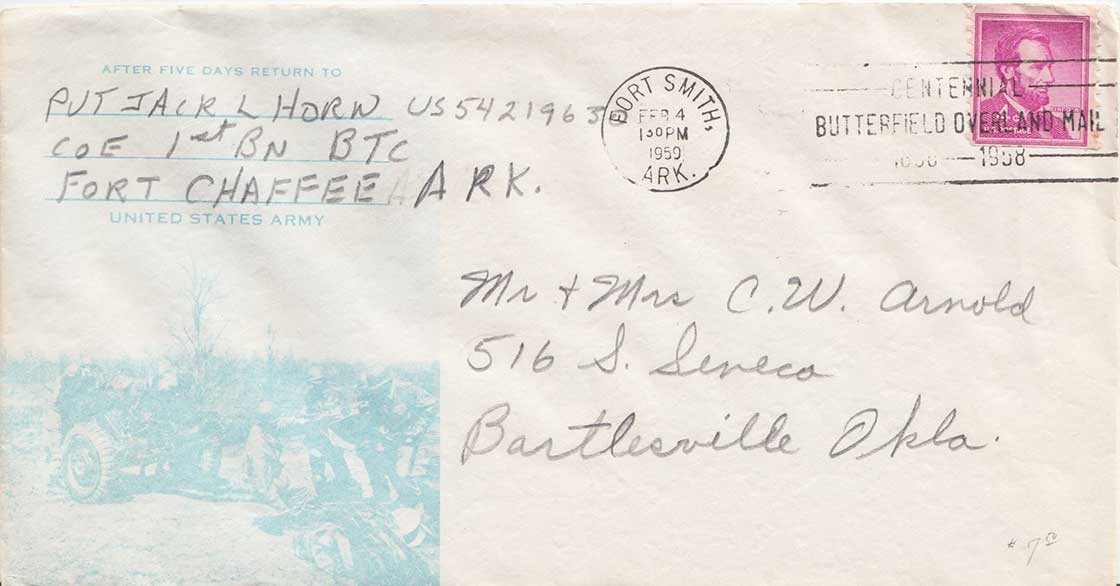 AFTER FIVE DAYS RETURN TO
PVT JACK L HORN US5421963
CO E 1st BN BTC
FORT CHAFFEE ARK.
UNITED STATES ARMY
FORT SMITH,
FEB 4
1:30 PM
1959
ARK.
CENTENNIAL
BUTTERFIELD OVERLAND MAIL
1858 — 1958
Mr + Mrs C.W. Arnold
516 S. Seneca
Bartlesville Okla.
# 7 50